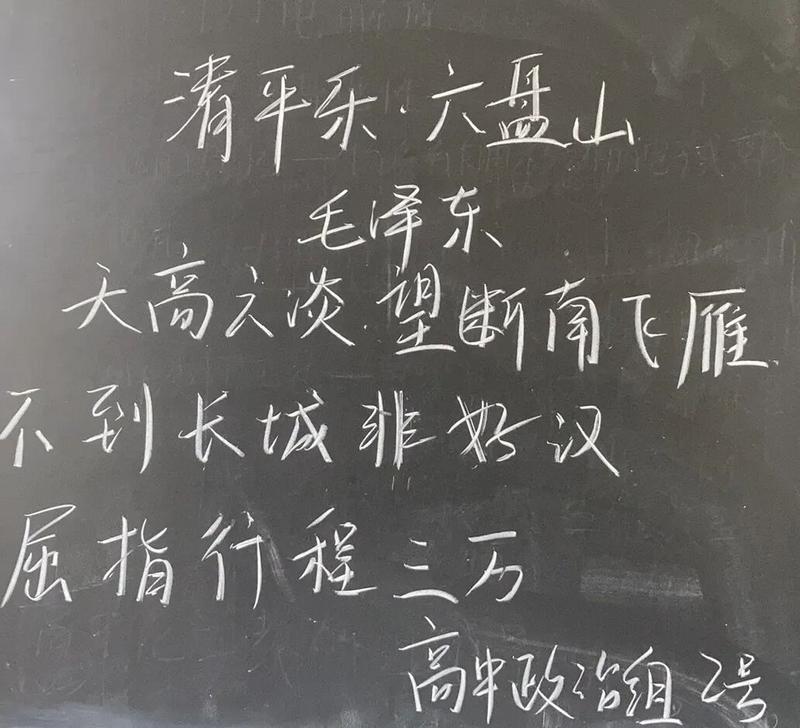 清平乐·六盘山
毛泽东
天高云淡.望断南飞雁.
不到长城非好汉
屈指行程三万
高中政治组 2号